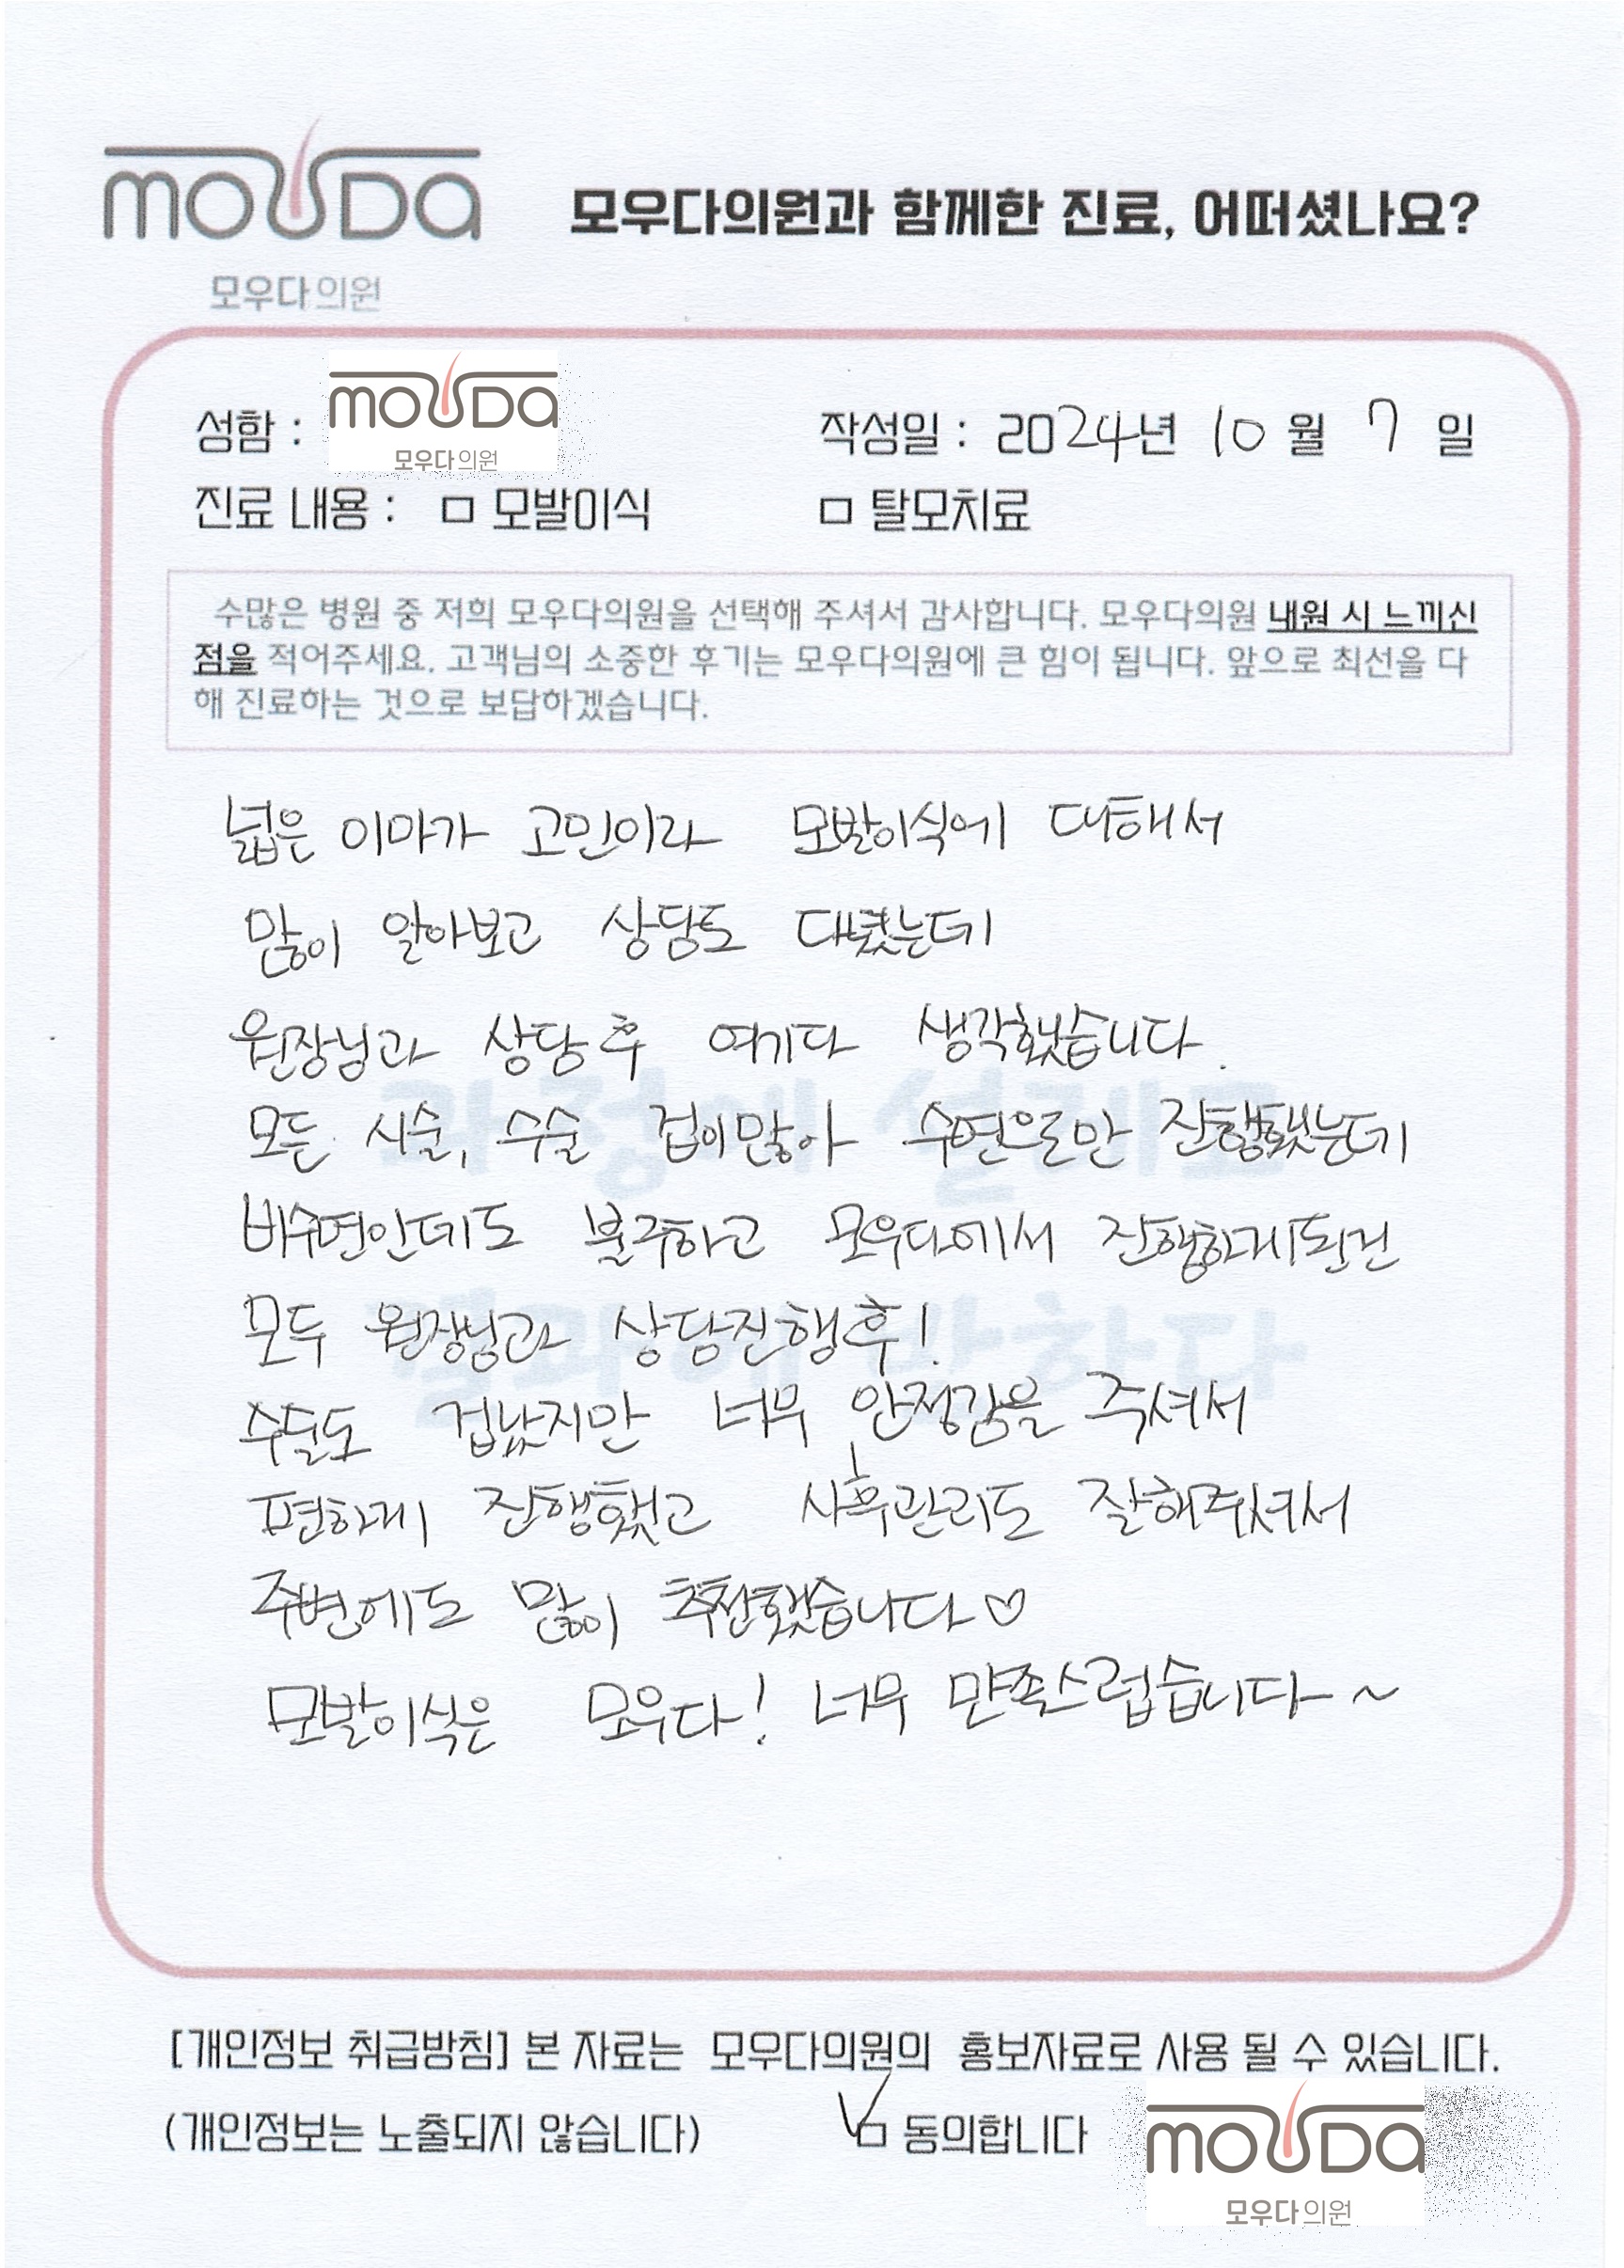 mouDa
모우다의원
모우다의원과 함께한 진료, 어떠셨나요?
성함 : mouDa 모우다의원
작성일 : 2024년 10월 7일
진료 내용 : □ 모발이식 □ 탈모치료
수많은 병원 중 저희 모우다의원을 선택해 주셔서 감사합니다. 모우다의원 내원 시 느끼신
점을 적어주세요. 고객님의 소중한 후기는 모우다의원에 큰 힘이 됩니다. 앞으로 최선을 다
해 진료하는 것으로 보답하겠습니다.
넓은 이마가 고민이라 모발이식에 대해서
많이 알아보고 상담도 대녔는데
원장님과 상담후 여기다 생각했습니다.
모든 시술, 수술 겁이많아 수면으로만 진행했는데
비수면인데도 불구하고 모우다에서 진행하게된건
모두 원장님과 상담진행후!
수술도 겁났지만 너무 안정감을 주셔서
편하게 진행했고 사후관리도 잘해주셔서
주변에도 많이 추천했습니다♡
모발이식은 모우다! 너무 만족스럽습니다~
과정에 설레고
결과에 반하다
[개인정보 취급방침] 본 자료는 모우다의원의 홍보자료로 사용 될 수 있습니다.
(개인정보는 노출되지 않습니다) ☑ 동의합니다
mouDa
모우다의원